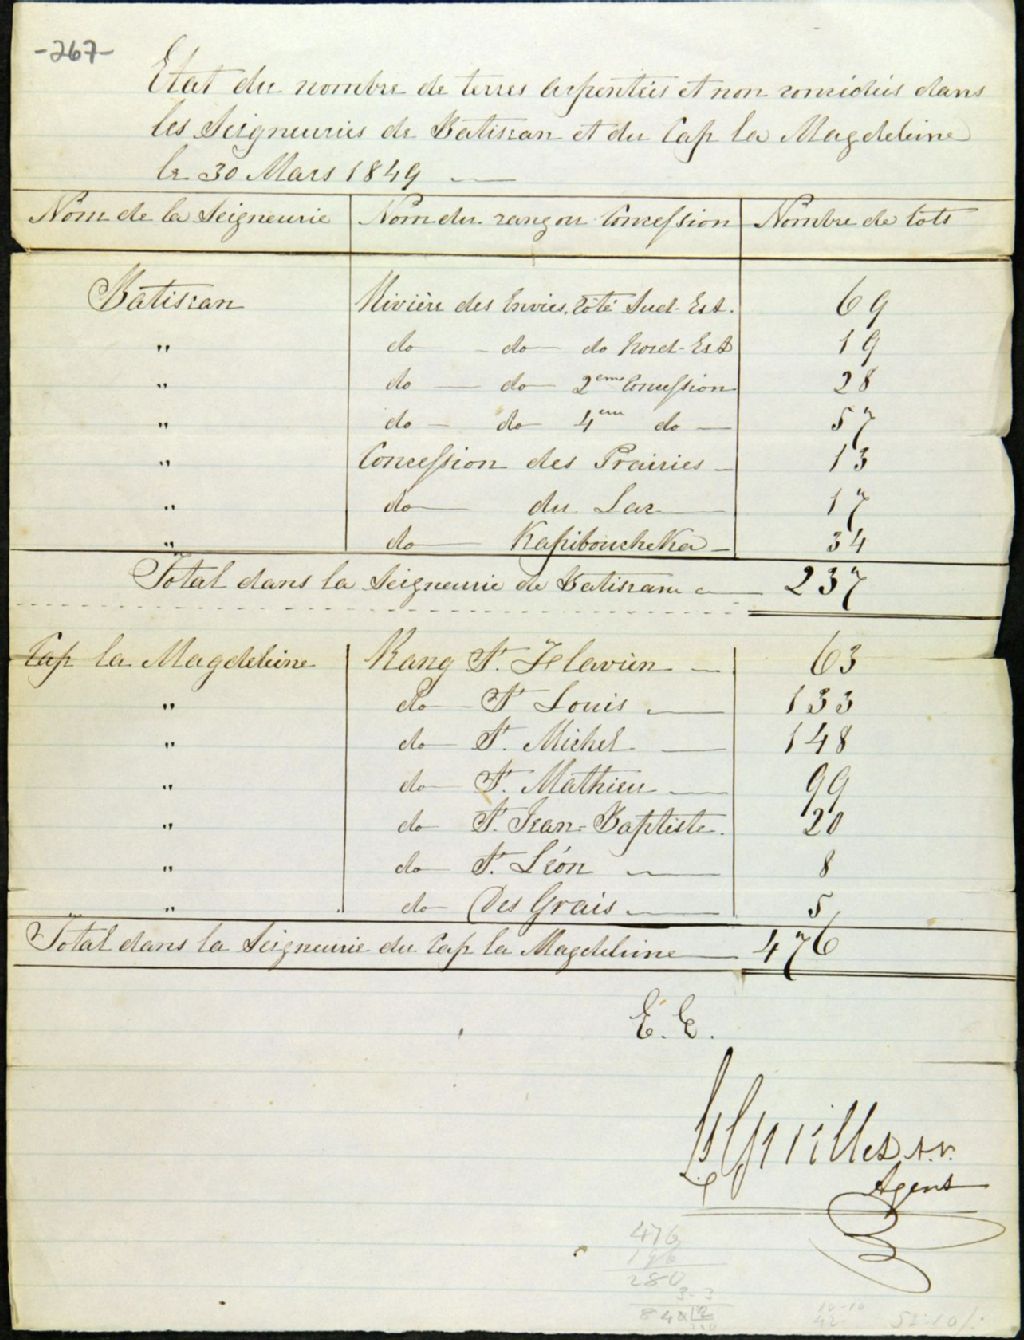 -267-
Etat du nombre de terres arpentées et non concédées dans
les Seigneuries de Batiscan et du Cap la Magdeleine
le 30 Mars 1849 —
Nom de la Seigneurie Nom du rang ou Concession Nombre de lots
Batiscan Rivière des Envies, côté Sud-Est. 69
" do - do - do Nord-Est 19
" do — do — 2eme Concession 28
" do — do — 4eme do — 57
" Concession des Prairies — 13
" do — du Lac — 17
" do — Kapibouchcka — 34
Total dans la Seigneurie de Batiscan — 237
Cap la Magdeleine Rang St. Flavien — 63
" do — St Louis — 133
" do — St. Michel — 148
" do — St. Mathieu — 99
" do — St. Jean-Baptiste. 20
" do — St. Léon — 8
" do — Des Grais — 5
Total dans la Seigneurie du Cap la Magdeleine — 476
E. E.
Agent
476
196
280